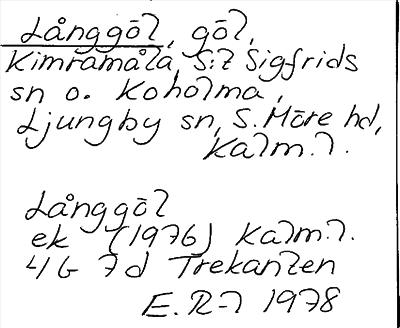 Långgöl, göl,
Kimramåla, S:t Sigfrids
sn o. Koholma,
Ljungby sn, S. Möre hd,
Kalm.l.
Långgöl
ek (1976) Kalm.l.
4 G 7d Trekanten
E.R-l 1978